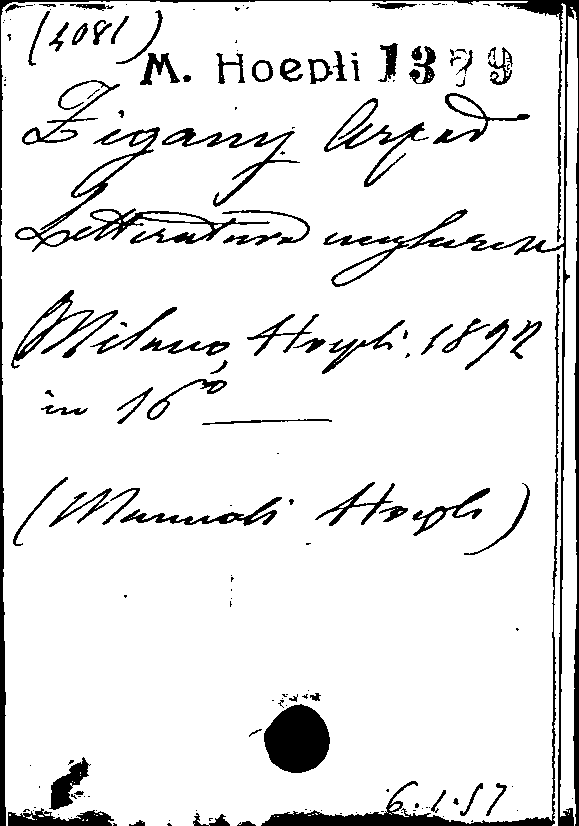 (4081)
M. Hoepli 1379
Zigany Arpad
Letteratura ungherese
Milano, Hoepli. 1892
in 16°
(Manuali Hoepli)
6.1.57